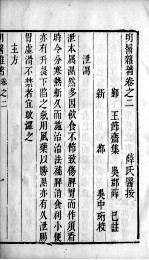 明醫雜著卷之二 薛氏醫按
鄞 王節齋集 吳郡薛 己註
新都 吳中珩校
泄瀉
泄本属濕然多因飲食不節致傷脾胃而作須看
時令分寒熱新久而施治治法補脾消食利小便
亦有升提下陷之氣用風藥以勝濕亦有久泄腸
胃虛滑不禁者宜收澀之
主方
明醫雜著卷之二